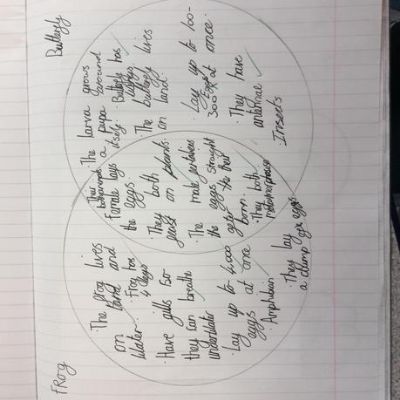 FRorg
· The frog lives
on land and
Water.
· Frog has
4 legs
· Have gills so
they can breathe
underwater
· Lay up to 4,000
eggs at once
· Amphibian
· They lay
a clump of eggs
· Female lays
the eggs
· They both
on plants
· The male
the eggs straight
born
· They both
metamorphose
Butterfly
· The larva grows
a pupa around
itself.
· Butterfly has
· The butterfly lives
on land
· Lay up to 100-
300 eggs at once.
· They have
antennae
Insects